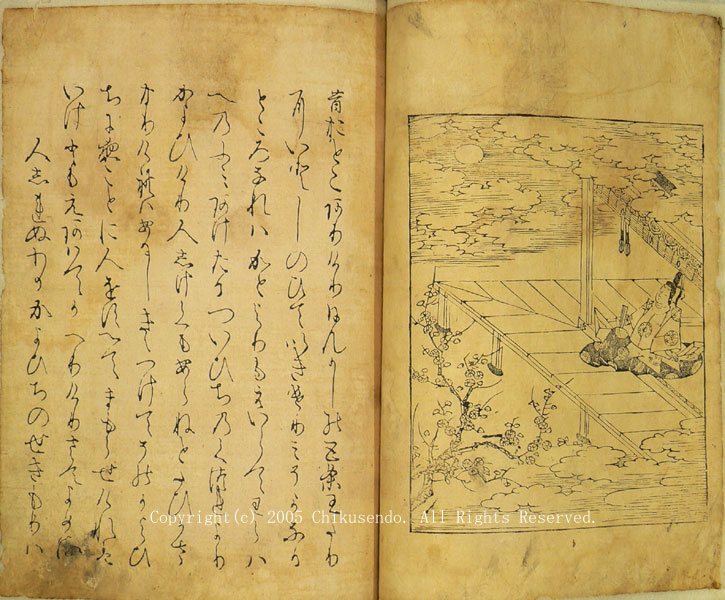 昔おとこありけりひんかしの五条わたり
にいとしのひていきけりみそかなる
ところなれはかとよりもえいらてわらは
へのふみあけたるついひちのくつれより
かよひけり人しけくもあらねとたひかさ
なりけれはあるしきゝつけてそのかよひ
ちに夜ことに人をすへてまもらせけれは
いけともえあはてかへりけりさてよめる
人しれぬわかかよひちのせきもりは
Copyright(c) 2005 Chikusendo. All Rights Reserved.